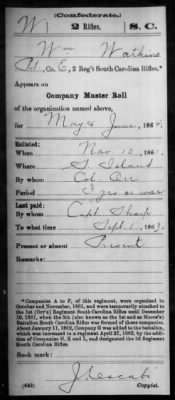 (Confederate.)
W 2 Rifles. S.C.
Wm Watkins
Pvt, Co. E, 2 Reg't South Carolina Rifles.*
Appears on
Company Muster Roll
of the organization named above,
for May & June, 1864.
Enlisted:
When Nov 10, 1861.
Where S. Island
By whom Col. Orr
Period 3 yrs or war
Last paid:
By whom Capt Sharp
To what time Sept. 1, 1863.
Present or absent Present
Remarks:
*Companies A to F, of this regiment, were organized in
October and November, 1861, and were temporarily attached to
the 1st (Orr's) Regiment South Carolina Rifles until December
10, 1861, when the 5th (also known as the 1st and as Moore's)
Battalion South Carolina Rifles was formed of these companies.
About January 11, 1862, Company G was added to the battalion,
which was increased to a regiment April 27, 1862, by the addition
of Companies H, K and L, and designated the 2d Regiment
South Carolina Rifles.
Book mark:
(642)
Copyist.